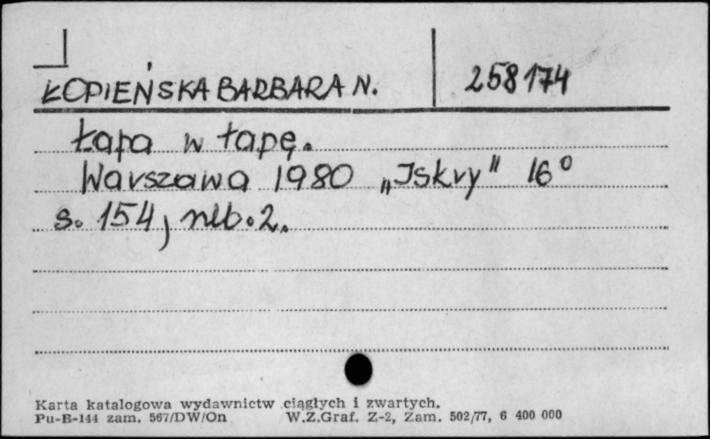 ŁOPIEŃSKA BARBARA N. 258174
Łapa w łapę.
Warszawa 1980 „Iskry" 16°
s. 154, nlb. 2.
Karta katalogowa wydawnictw ciągłych i zwartych.
Pu-B-144 zam. 567/DW/On W.Z.Graf. Z-2, Zam. 502/77, 6 400 000